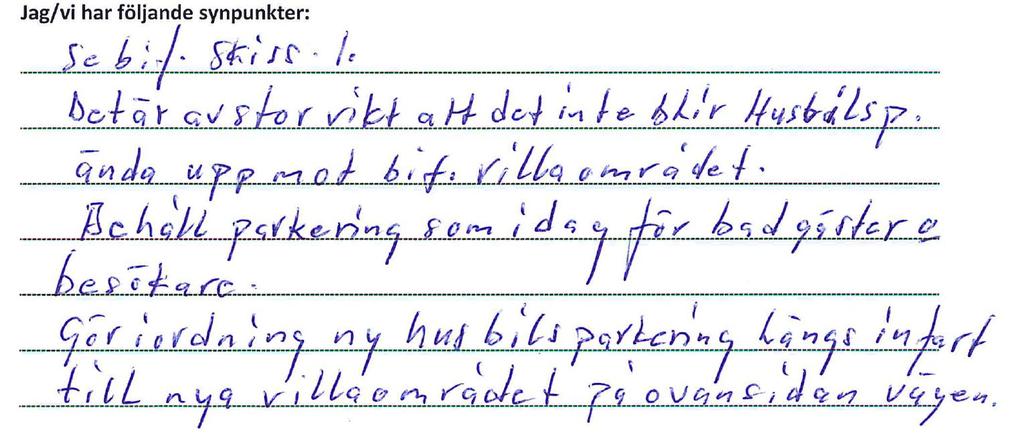 Jag/vi har följande synpunkter:
Se bif. Skiss. 1.
Det är av stor vikt att det inte blir Husbilsp.
ända upp mot bif. villaområdet.
Behåll parkering som idag för badgäster o
besökare.
Gör iordning ny husbilsparkering längs infart
till nya villaområdet på ovansidan vägen.